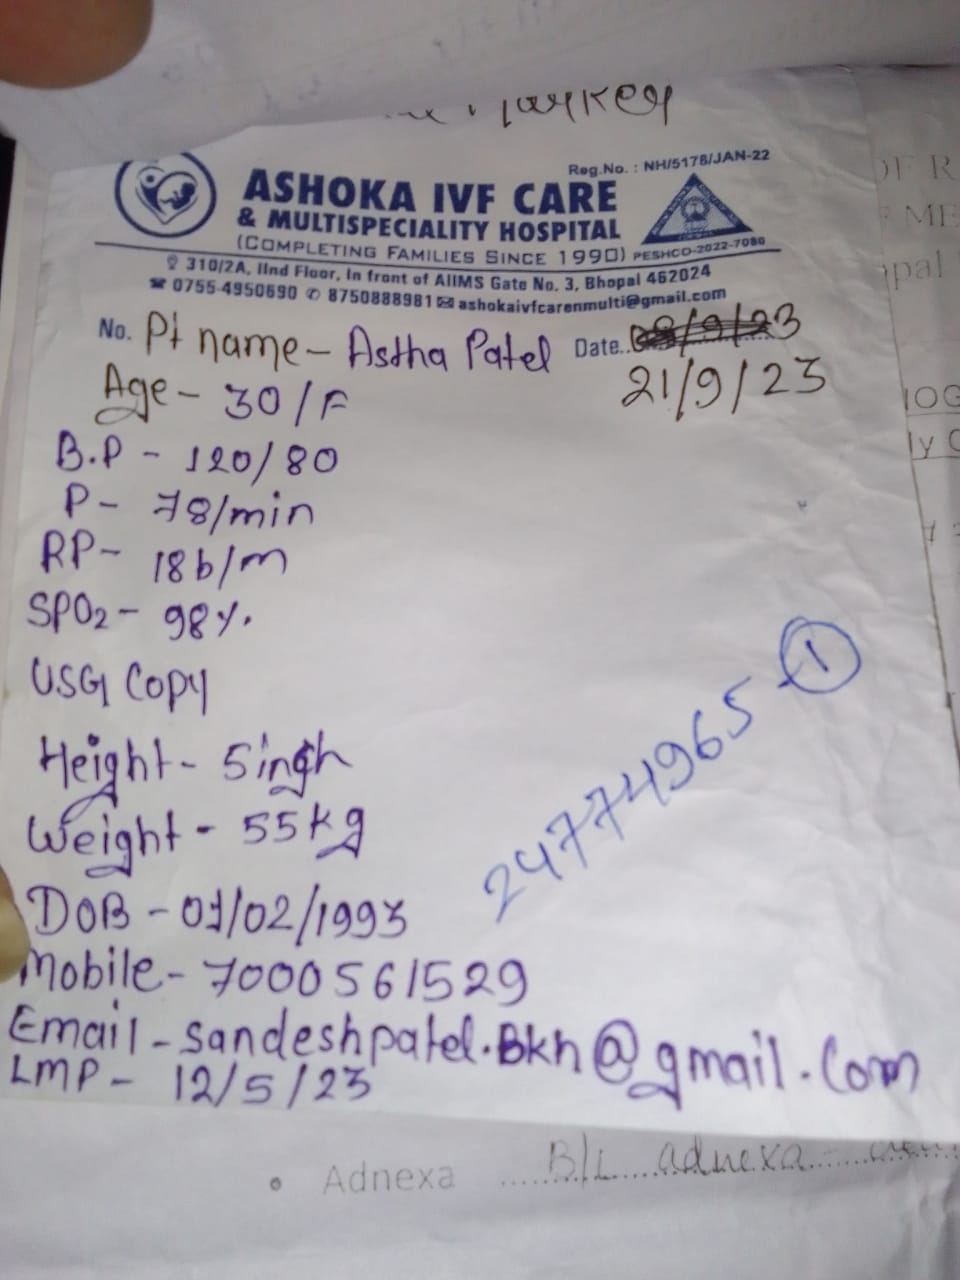 Marker
Reg.No. : NH/5178/JAN-22
ASHOKA IVF CARE
& MULTISPECIALITY HOSPITAL
(COMPLETING FAMILIES SINCE 1990) PESHCO-2022-7080
310/2A, IInd Floor, In front of AIIMS Gate No. 3, Bhopal 462024
0755-4950690 8750888981 ashokaivfcarenmulti@gmail.com
No. Pt name - Astha Patel Date..08/9/23
Age - 30/F 21/9/23
B.P - 120/80
P - 78/min
RP - 18b/m
SPO2 - 98%.
USG Copy
Height - 5ingh
Weight - 55kg
24774965-1
DOB - 01/02/1993
Mobile - 7000561529
Email - sandeshpatel.Bkh@gmail.com
LMP - 12/5/23
• Adnexa B/L adnexa